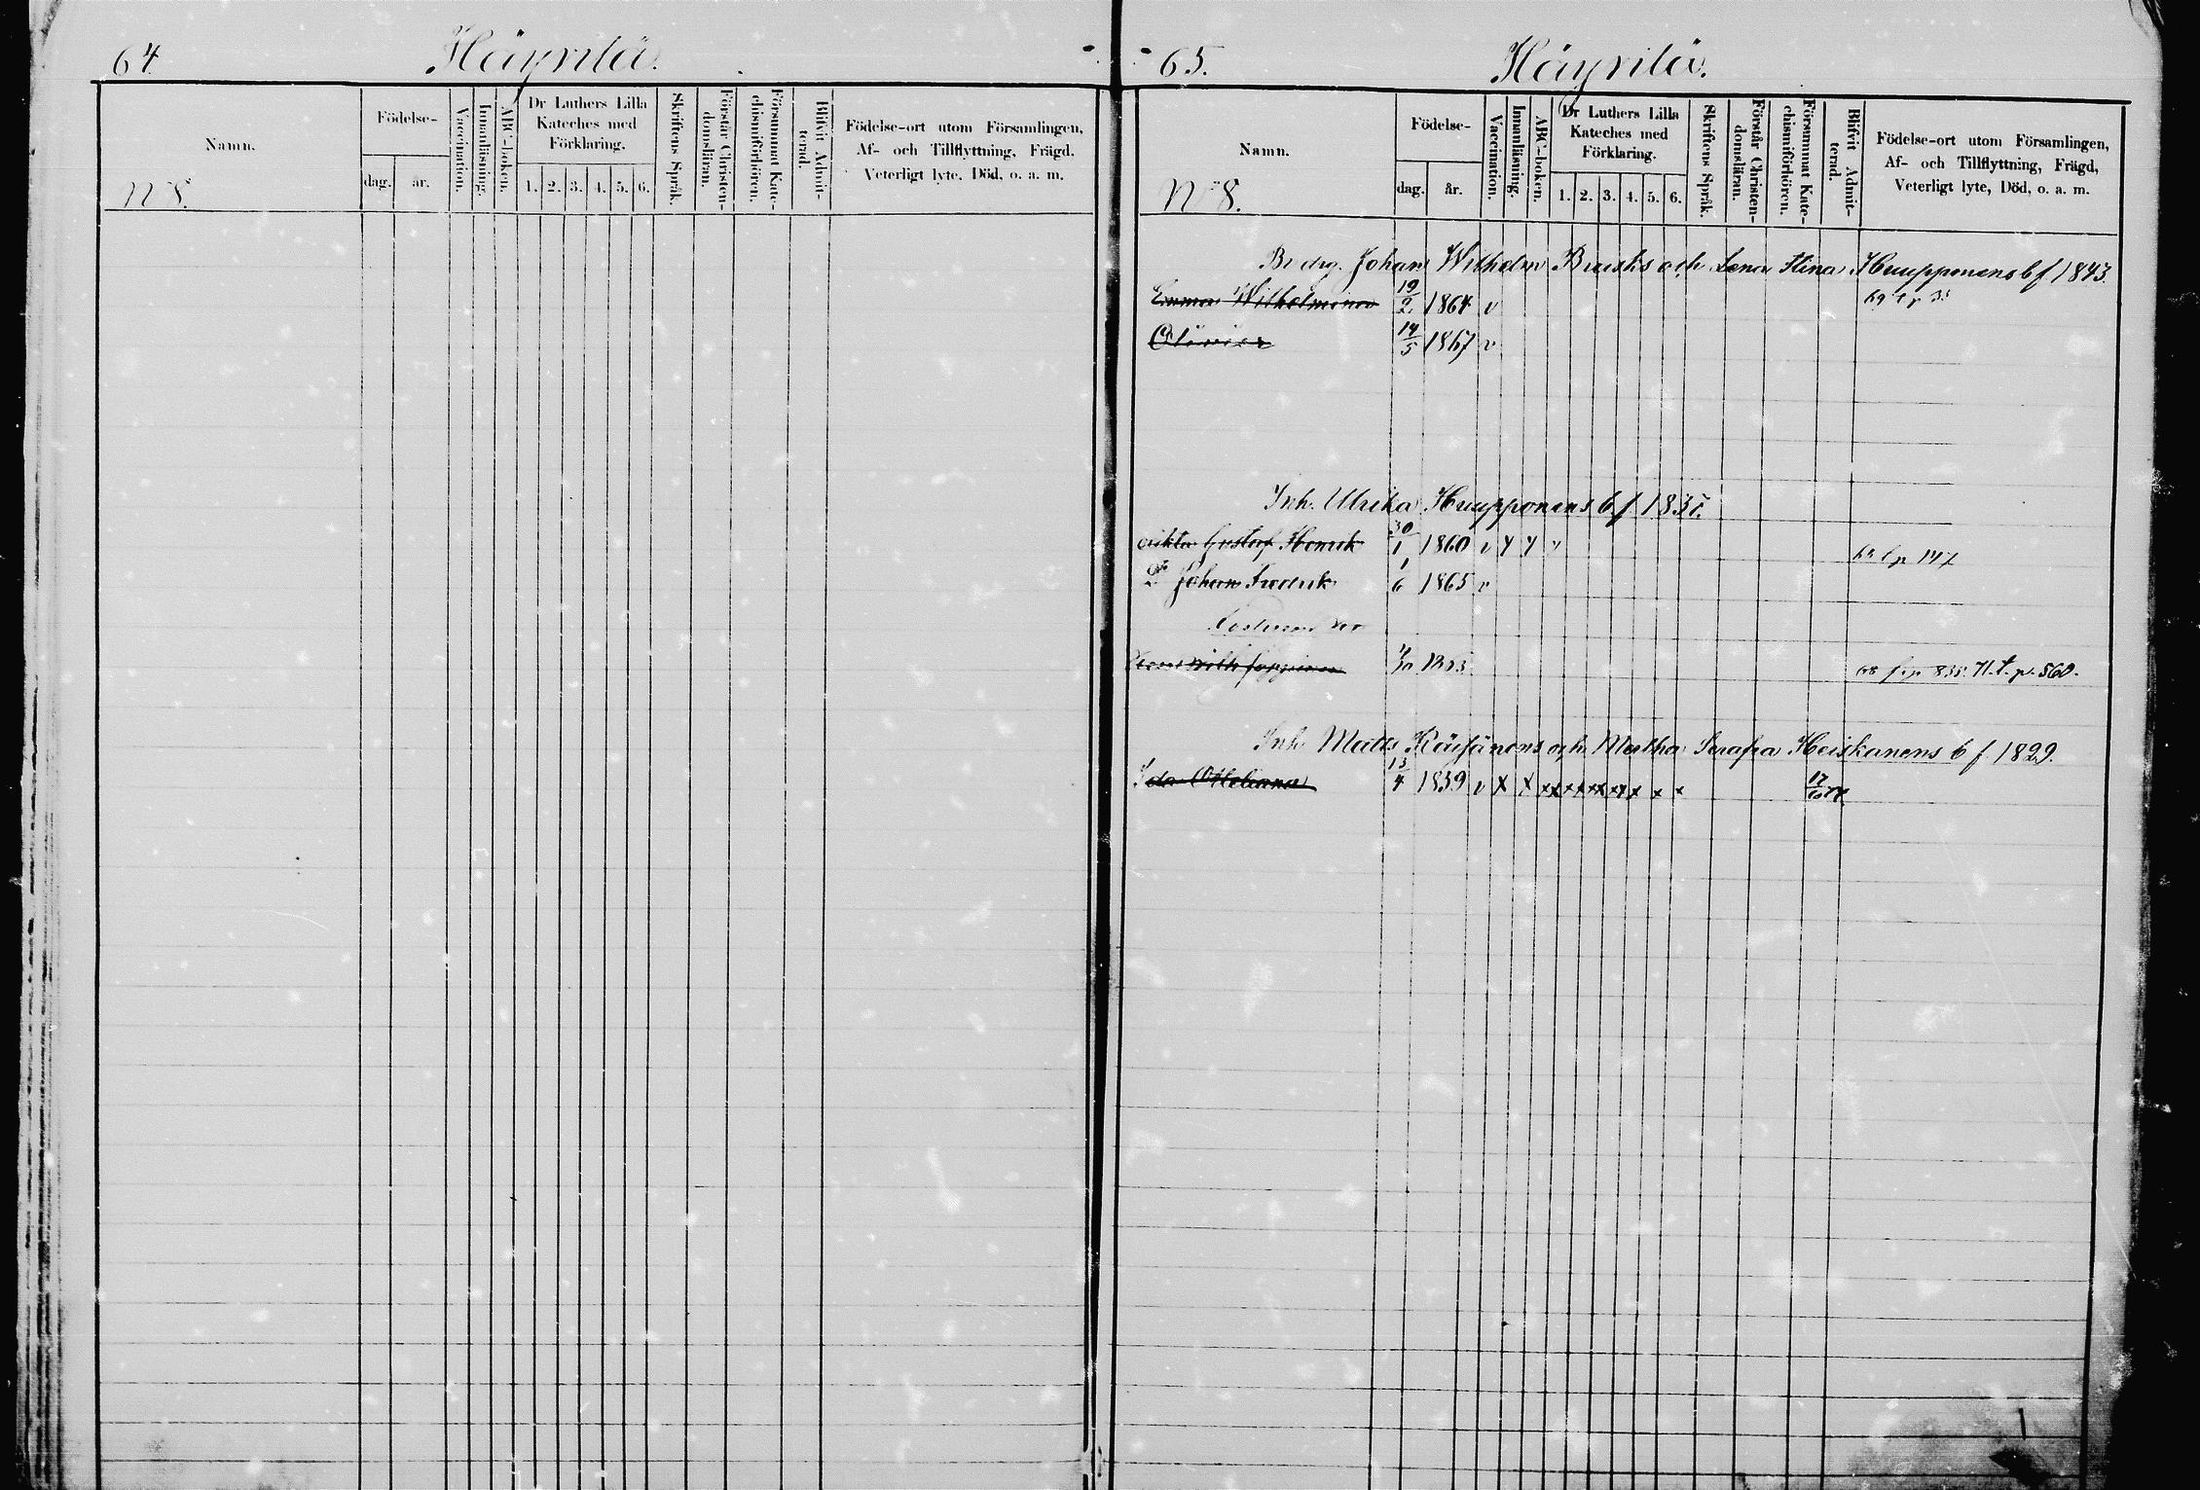 64.
Häyrilä.
Namn.
Födelse-
dag. år.
Vaccination.
Innanläsning.
ABC-boken.
Dr Luthers Lilla
Kateches med
Förklaring.
1. 2. 3. 4. 5. 6.
Skriftens Språk.
Förstår Christen-
domsläran.
Försummat Kate-
chismiförhören.
Blifvit Admit-
terad.
Födelse-ort utom Församlingen,
Af- och Tillflyttning, Frägd,
Veterligt lyte, Död, o. a. m.
N 8.
65.
Häyrilä.
Namn.
Födelse-
dag. år.
Vaccination.
Innanläsning.
ABC-boken.
Dr Luthers Lilla
Kateches med
Förklaring.
1. 2. 3. 4. 5. 6.
Skriftens Språk.
Förstår Christen-
domsläran.
Försummat Kate-
chismiförhören.
Blifvit Admit-
terad.
Födelse-ort utom Församlingen,
Af- och Tillflyttning, Frägd,
Veterligt lyte, Död, o. a. m.
N 8.
Johan Wilhelm och Lena Stina Huupponens b f 1843.
Emma Wilhelmina 19/2 1864 v
14/5 1867 v
Inh. Ulrika Huupponens b f 1835.
Gustaf Henrik 30/1 1860 v
Johan Fredrik 1/6 1865 v
71. t. p. 560.
Inh. Matts Räisänens och Martha Serafia Heiskanens b f. 1829.
Ida 13/4 1859 v x x x x x x x x x x